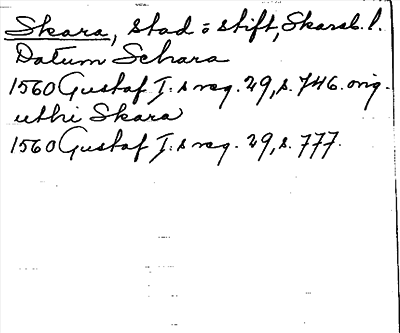 Skara, stad o stift, Skarab. l.
Datum Schara
1560 Gustaf I:s reg. 29, s. 746. orig.
uthi Skara
1560 Gustaf I:s reg. 29, s. 777.